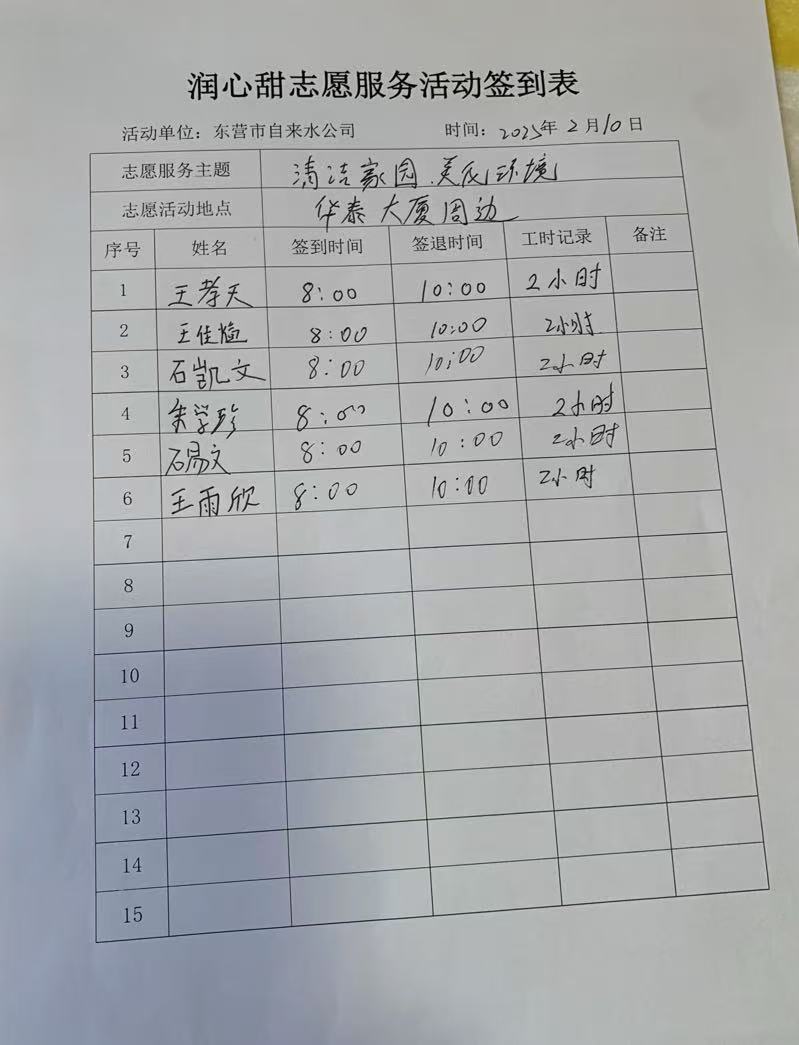 润心甜志愿服务活动签到表
活动单位：东营市自来水公司 时间：2025年2月10日
志愿服务主题 清洁家园 美化环境
志愿活动地点 华泰大厦周边
序号 姓名 签到时间 签退时间 工时记录 备注
1 王孝天 8:00 10:00 2小时
2 王佳 8:00 10:00 2小时
3 石凯文 8:00 10:00 2小时
4 朱学珍 8:00 10:00 2小时
5 石易文 8:00 10:00 2小时
6 王雨欣 8:00 10:00 2小时
7
8
9
10
11
12
13
14
15